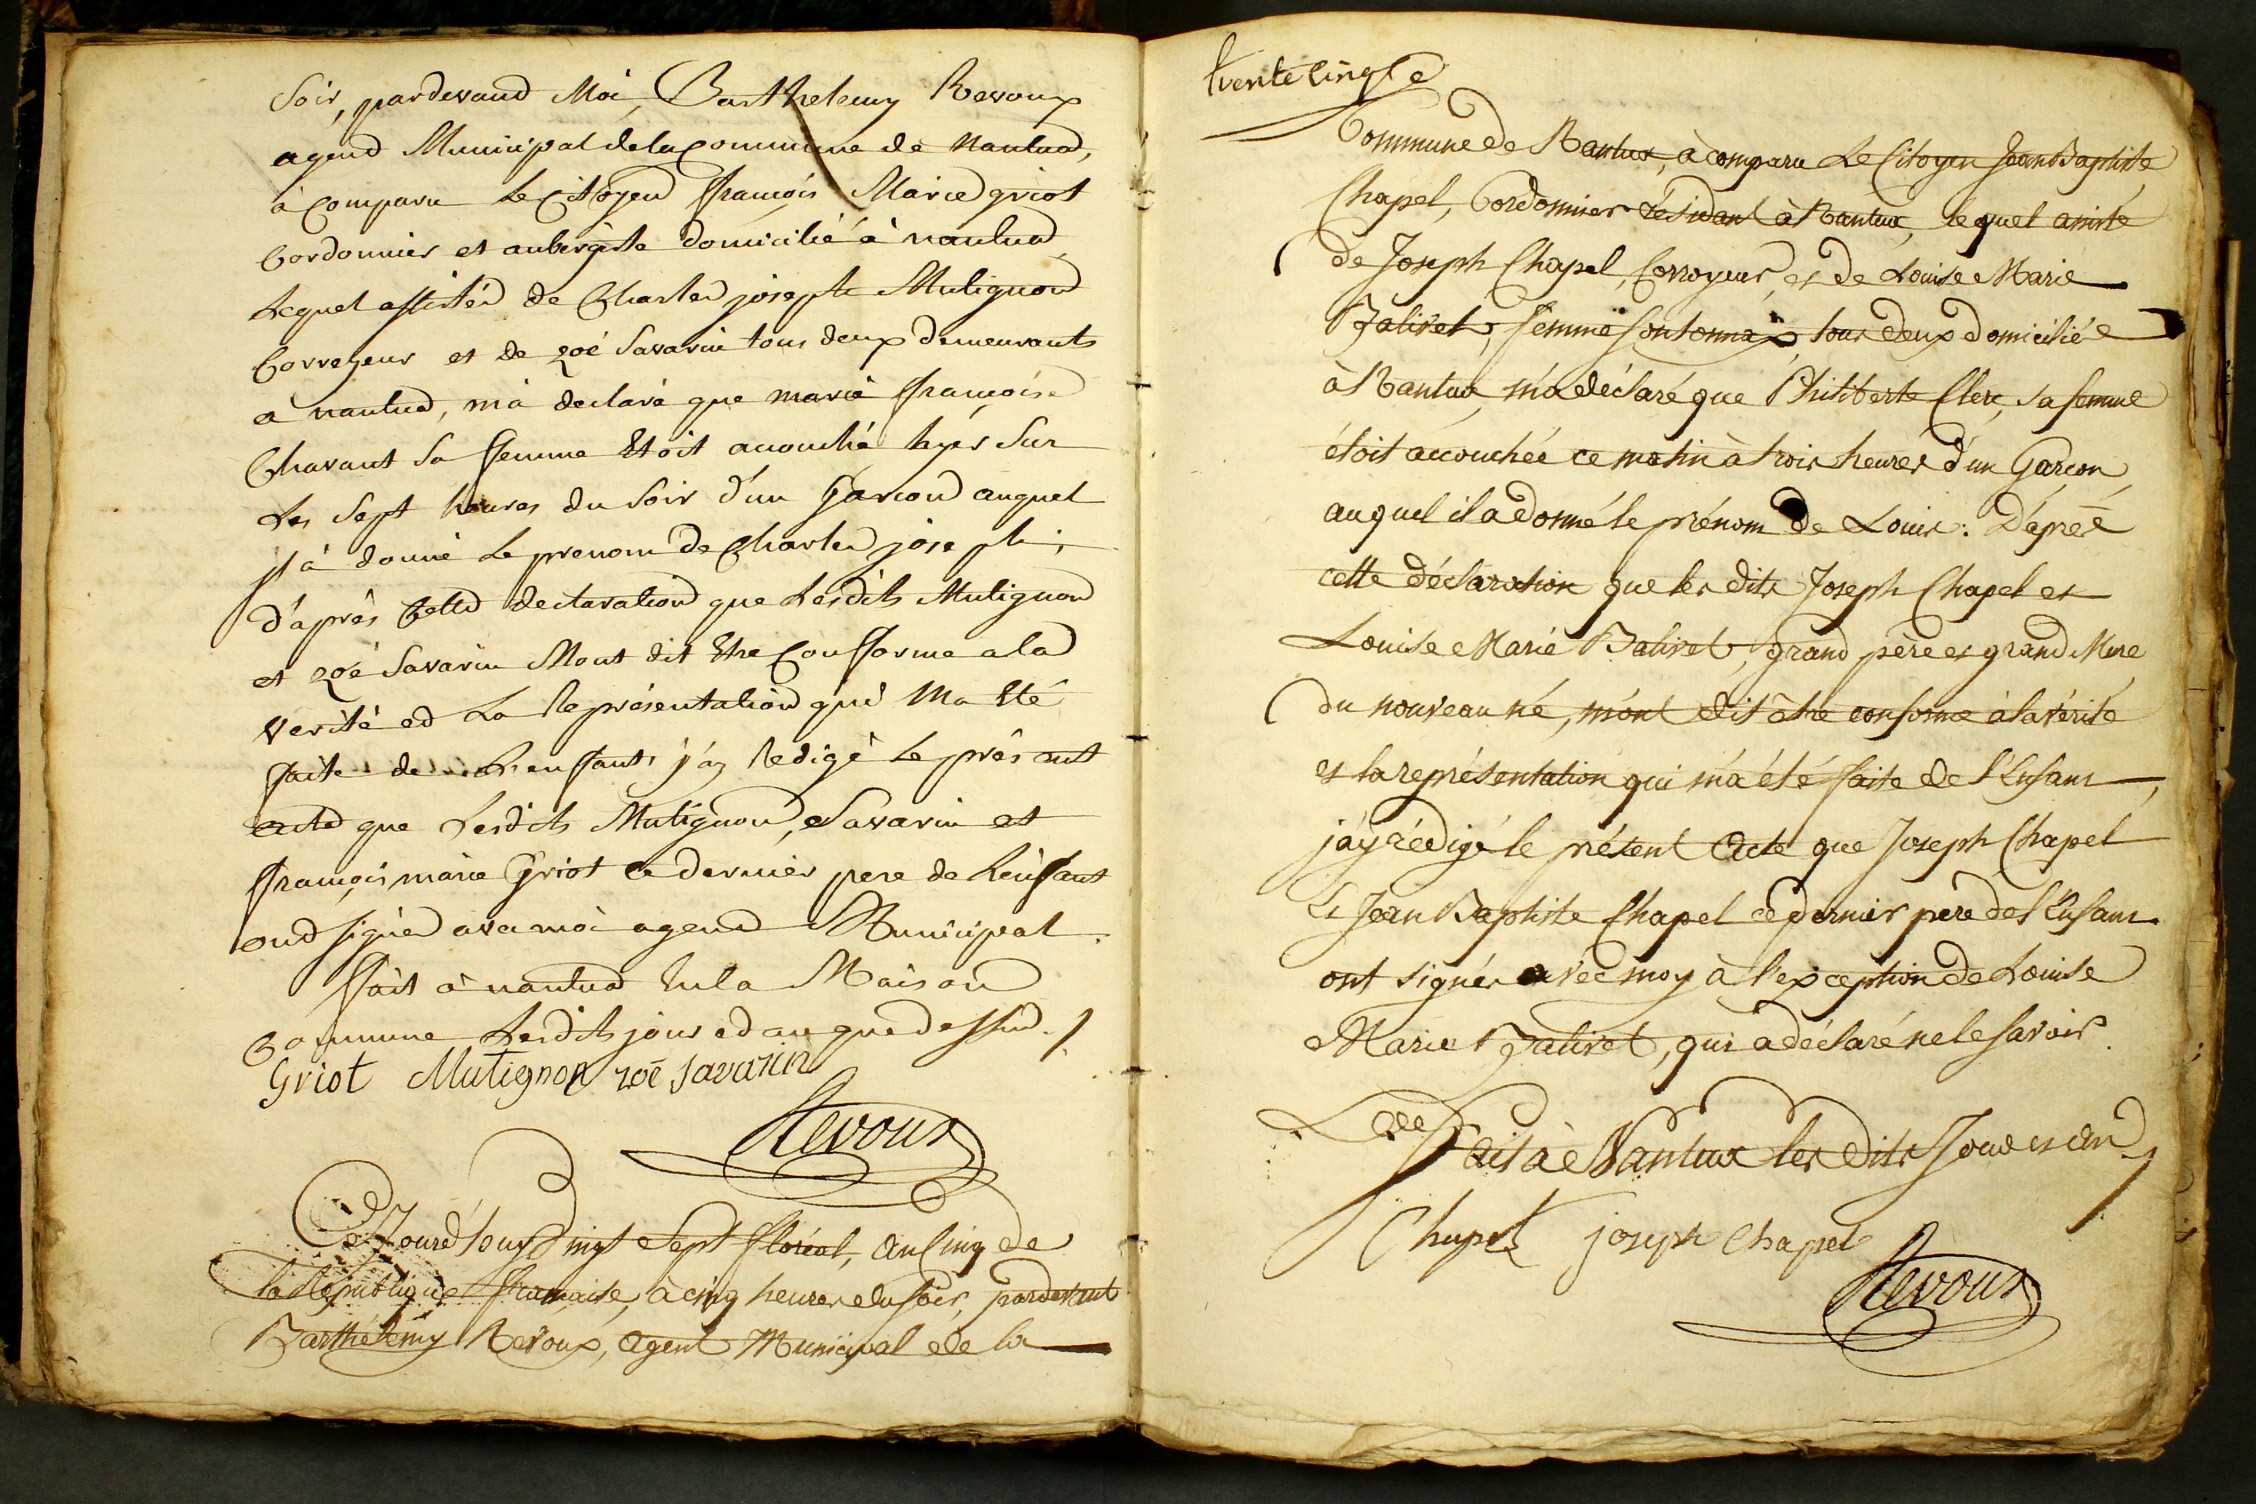 Soir, pardevand Moi, Barthelemy Revoux
agend Municipal de la Commune de nantua,
à Comparu Le Citoyen françois Marie griot
Cordonnier et aubergiste domicilié à nantua
Lequel assisté de Charles joseph Mutignon
Corroyeur et de zoé Savarin tous deux demeurants
a nantua, m'à declaré que marie françoise
Chavant sa femme Etoit accouché hyer Sur
Les Sept heures du Soir d'un Garcon auquel
il à donné Le prenom de Charles joseph;
d'après Cette declaration que Lesdits Mutignon
et zoé Savarin Mont dit Etre Conforme a la
Verité ed La Representation qui Ma Eté
faite de L'enfant j'ay Redigé Le présent
acte que Lesdits Mutignon, Savarin et
françois marie Griot Ce dernier pere de L'enfant
ond signé avec moi agend Municipal.
fait à nantua En la Maison
Commune Lesdits jour ed an que dessus ./.
Griot Mutignon zoé savarin
Revoux
Ce Jourd'huy vingt Sept floréal, an Cinq de
la République française, à cinq heures du soir, pardevant
Barthélemy Revoux, agent Municipal de la
trente Cinq
Commune de Nantua, à comparu Le Citoyen Jean Baptiste
Chapel, Cordonnier résidant à Nantua, lequel assisté
de Joseph Chapel, Corroyeur, et de Louise Marie
Balivet, femme tous deux domiciliés
à Nantua, m'a déclaré que Philiberte Clerc, sa femme
étoit accouchée ce matin à trois heures d'un Garcon,
auquel il a donné le prénom de Louis: D'après
cette déclaration que les dits Joseph Chapel et
Louise Marie Balivet, grand père et grand Mere
du nouveau né, m'ont dit etre conforme à la vérité
et la représentation qui m'a été faite de l'Enfant,
j'ay rédigé le présent acte que Joseph Chapel
Et Jean Baptiste Chapel ce dernier pere de l'Enfant
ont signés avec moy à l'exception de Louise
Marie Balivet, qui a déclaré ne le savoir.
fait à Nantua les dits Jour et an ./.
Chapel joseph Chapel
Revoux